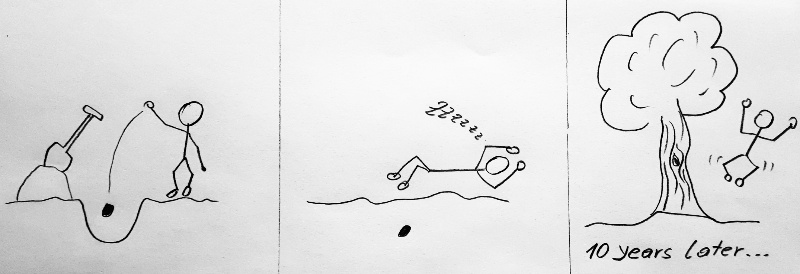 Zzzzzz
10 years later...